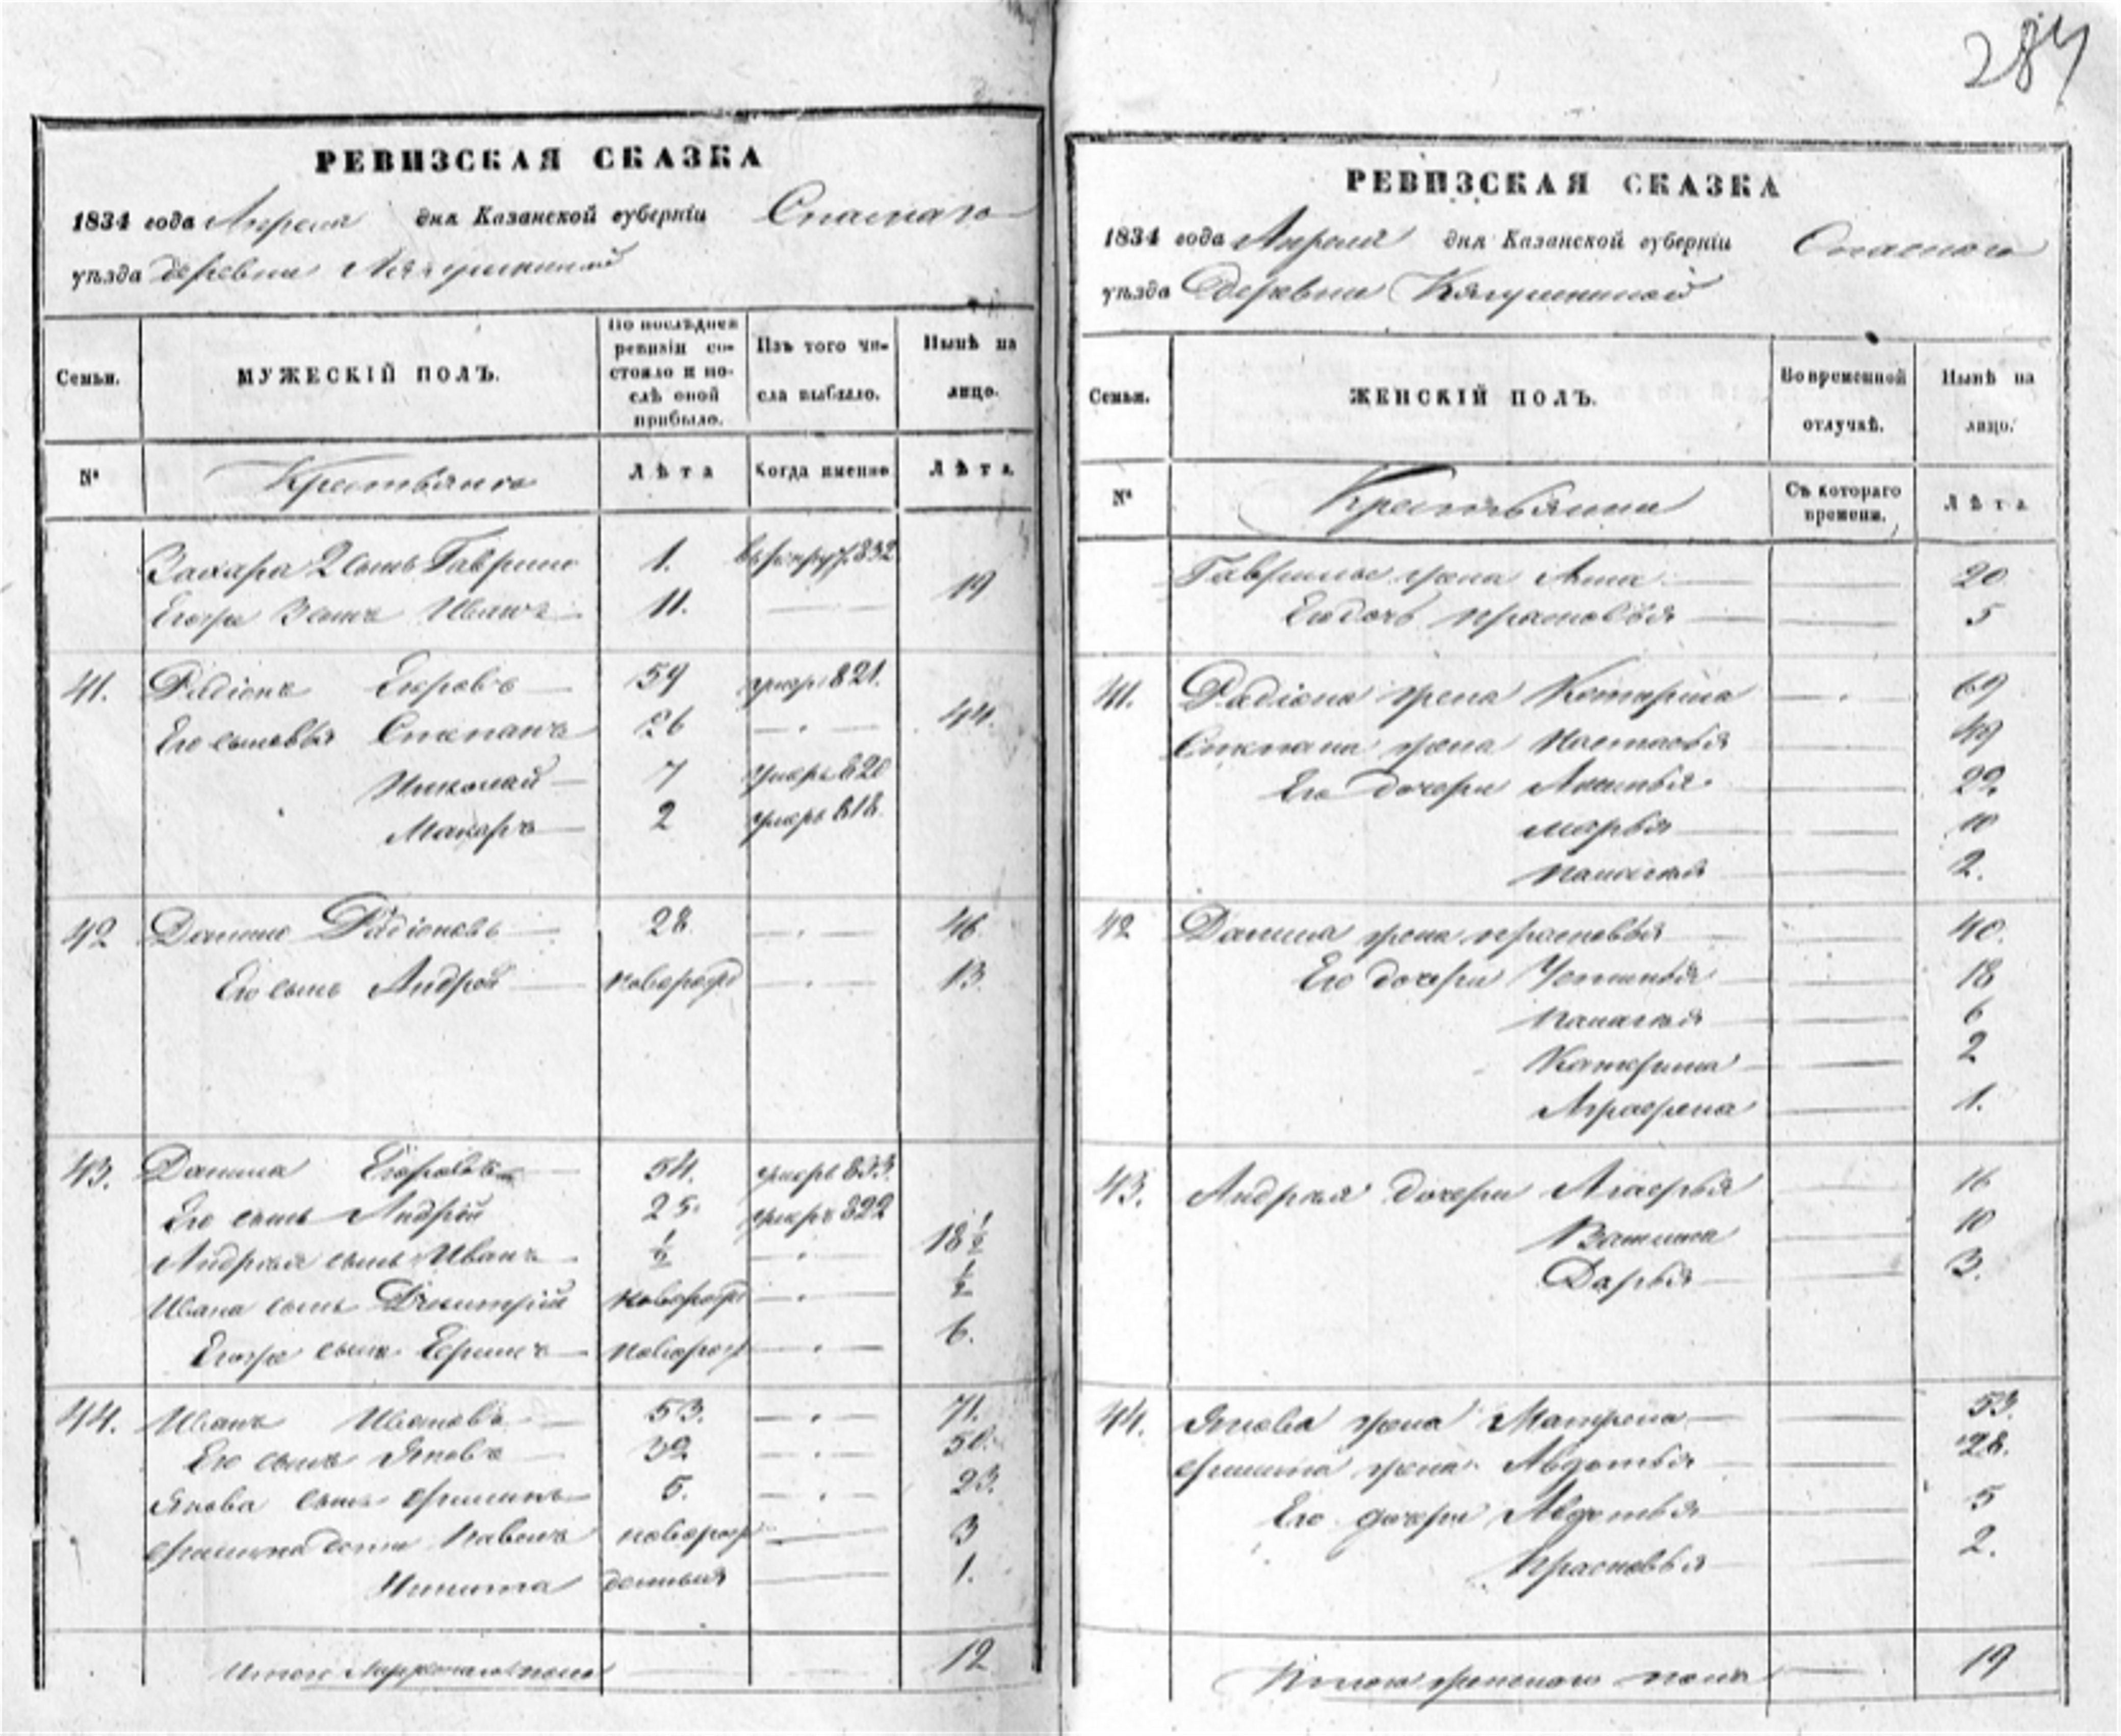 284
РЕВИЗСКАЯ СКАЗКА
1834 года Апреля дня Казанской губерніи Спаскаго
уѣзда деревни
Семьи.
МУЖЕСКІЙ ПОЛЪ.
По послѣдней ревизіи состояло и послѣ оной прибыло.
Изъ того числа выбыло.
Нынѣ на лицо.
№
Крестьяне
Лѣта
Когда именно
Лѣта
Захара 2 сынъ Гаврило 1. въ рекру. 832
Егора 3 сынъ Иванъ 11. 19
41. Радіонъ Егоровъ 59 умеръ 821.
Его сыновья Степанъ 26 44.
Николай 7 умеръ 820
Макаръ 2 умеръ 818.
42 Данило Радіоновъ 28 46
Его сынъ Андрей новорожд 13.
43. Данила Егоровъ 54. умеръ 833.
Его сынъ Андрей 25. умеръ 822
Андрея сынъ Иванъ ½ 18½
Ивана сынъ Дмитрій новорожд ½
Егора сынъ новорож 6.
44. Иванъ Ивановъ 53. 71.
Его сынъ Яковъ 32 50.
Якова сынъ 5. 23.
дети Павелъ новорож 3
Никита 1.
Итого мужеска пола 12
РЕВИЗСКАЯ СКАЗКА
1834 года Апреля дня Казанской губерніи Спаскаго
уѣзда Деревни
Семьи.
ЖЕНСКІЙ ПОЛЪ.
Во временной отлучкѣ.
Нынѣ на лицо.
№
Крестьянки
Съ котораго времени.
Лѣта
Гаврилы жена Анна 20
Его дочь Прасковья 5
41. Радіона жена Катерина 69
Степана жена Настасья 49
Его дочери 22.
Марья 10
Палагея 2.
42 Данила жена Прасковья 40.
Его дочери Устинья 18
Палагея 6
Катерина 2
Аграфена 1.
43. Андрея дочери 16
10
Дарья 3.
44. Якова жена Матрена 53.
жена Авдотья 28.
Его дочери Авдотья 5
Прасковья 2.
Итого женскаго пола 19